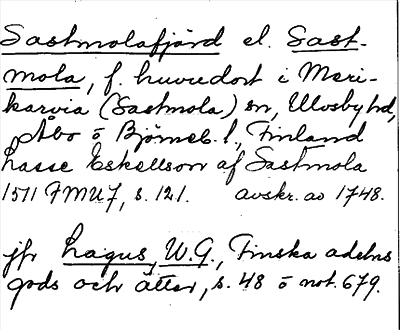 Sastmolafjärd el. Sast-
mola, f. huvudort i Meri-
karvia (Sastmola) sn, Ulvsby hd,
Åbo o Björneb. l., Finland
Lasse Eskellson af Sastmola
1511 FMU 7, s. 121. avskr. av 1748.
jfr Lagus, W.G., Finska adelns
gods och ätter, s. 48 o not. 679.